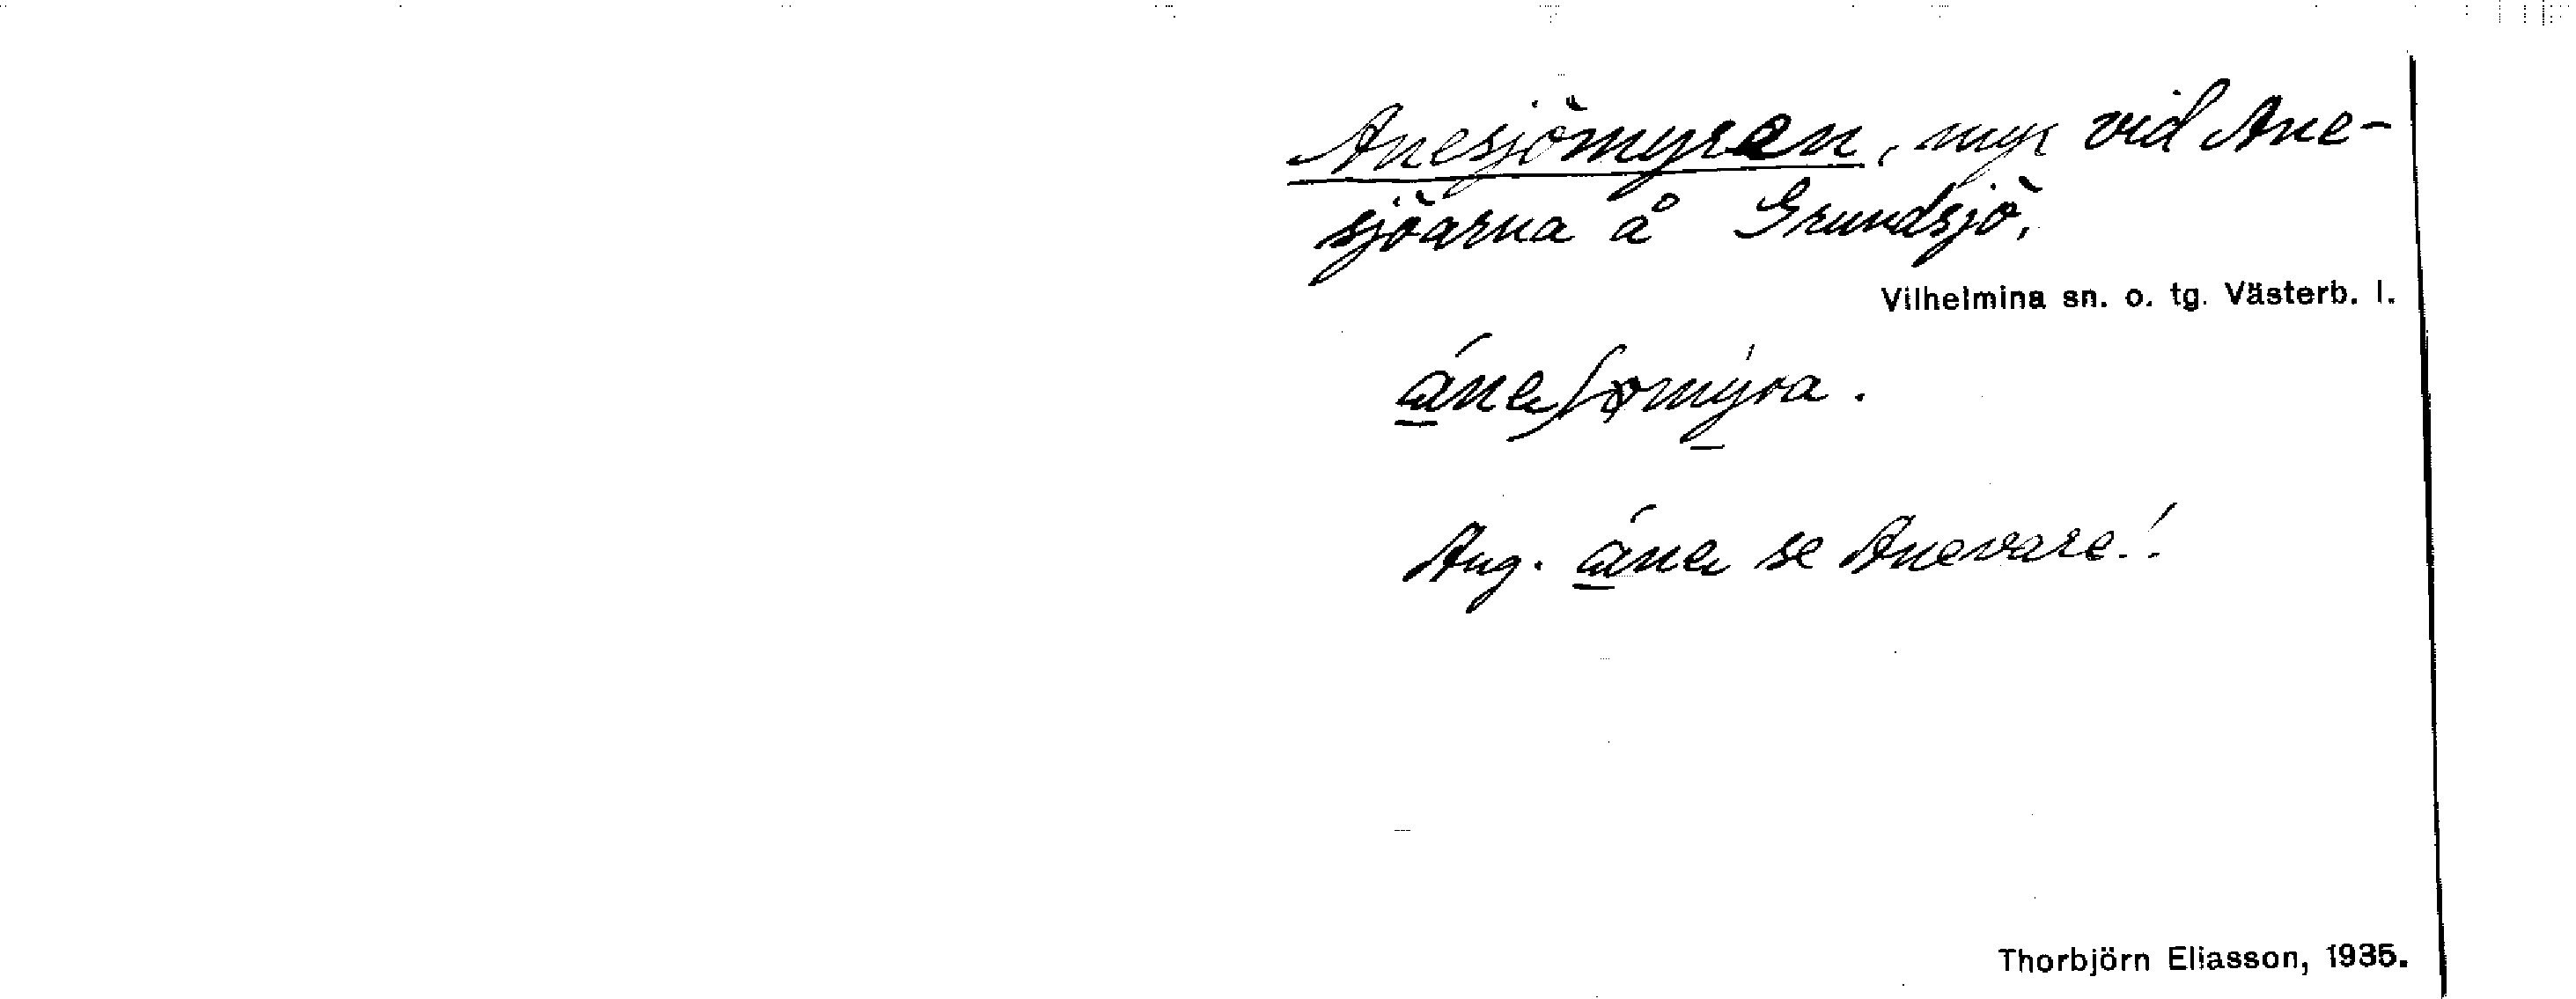 Anesjömyren, myr vid Ane-
sjöarna å Grundsjö.
Vilhelmina sn. o. tg. Västerb. l.
Ang. se Anevare!
Thorbjörn Eliasson, 1935.